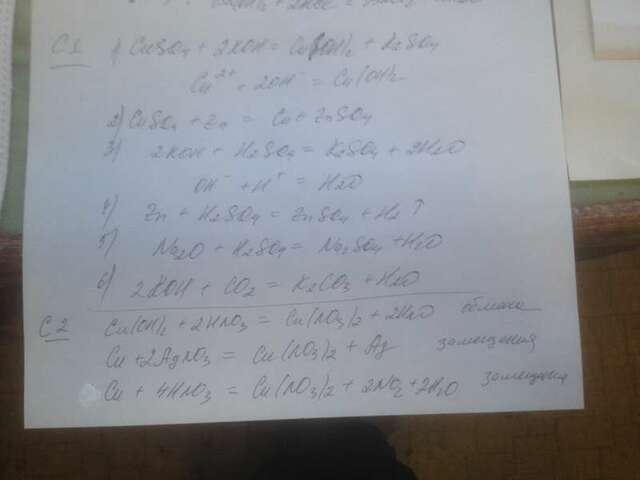 C1 1) CuSO4 + 2KOH = Cu(OH)2 + K2SO4
Cu2+ + 2OH- = Cu(OH)2
2) CuSO4 + Zn = Cu + ZnSO4
3) 2KOH + H2SO4 = K2SO4 + 2H2O
OH- + H+ = H2O
4) Zn + H2SO4 = ZnSO4 + H2 ↑
5) Na2O + H2SO4 = Na2SO4 + H2O
6) 2KOH + CO2 = K2CO3 + H2O
C2 Cu(OH)2 + 2HNO3 = Cu(NO3)2 + 2H2O обмена
Cu + 2AgNO3 = Cu(NO3)2 + Ag замещения
Cu + 4HNO3 = Cu(NO3)2 + 2NO2 + 2H2O замещения